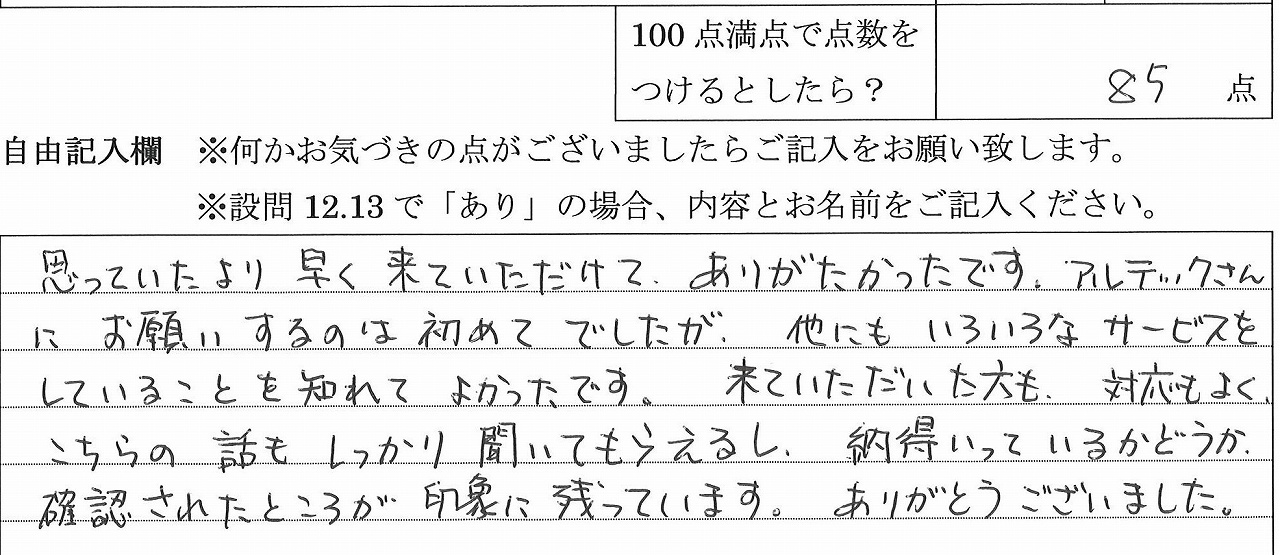 100点満点で点数を
つけるとしたら？
85 点
自由記入欄 ※何かお気づきの点がございましたらご記入をお願い致します。
※設問12.13で「あり」の場合、内容とお名前をご記入ください。
思っていたより早く来ていただけて、ありがたかったです。アルテックさん
にお願いするのは初めてでしたが、他にもいろいろなサービスを
していることを知れてよかったです。来ていただいた方も、対応もよく、
こちらの話もしっかり聞いてもらえるし、納得いっているかどうか、
確認されたところが印象に残っています。ありがとうございました。